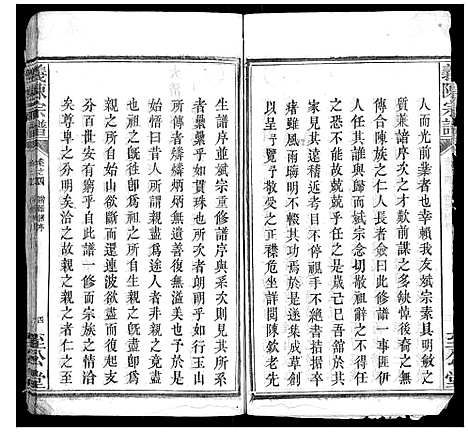 義陳宗譜
人而光前業者也幸賴我友斌宗素具明敏大
質兼諸序次之才歎前謀之多缺悼後嗣之
傳合陳族之仁人長者僉曰此修譜一事匪
伊任其誰與歸而斌宗念切人祖辭之不得任
之不能故兢兢乎任之歲己巳吾舘於
家見其丹黃甲乙目不停視手不絶書拮据
者雖風雨晦明不輟其功焉於是遂集成草創
以呈予覽予敬受之正襟危坐詳閱陳欽老先
生譜序並斌宗重修譜序與系次則見其所系
者纍纍乎如貫珠也所次者朗朗乎如行玉山
所傳者祥祥炳炳無遺無復無溢美也于是予
始悟焉曰昔人所謂親盡爲途人者非親之竟盡
親之也不親其祖之所自生親之則盡即爲
親之所自始分歧不而還連波欲盡而復起支
分百世安有窮乎自此譜一修而宗族之情洽
矣尊卑之分明矣洽之故親之親之者仁之至
義陳宗譜
卷之四
四
至公堂
至公堂